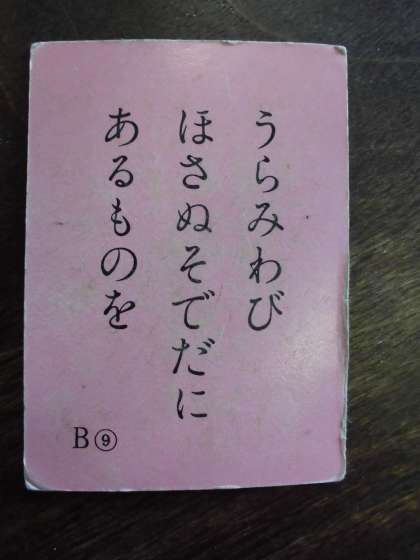 うらみわび
ほさぬそでだに
あるものを
B⑨